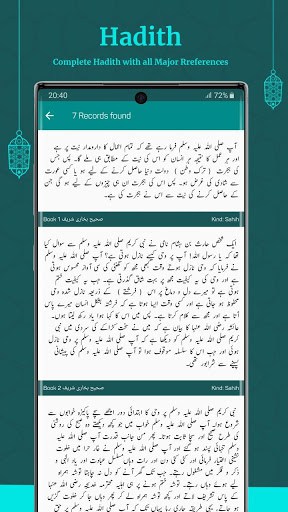 Hadith
Complete Hadith with all Major Rreferences
20:40
72%
7 Records found
آپ صلی اللہ علیہ وسلم فرما رہے تھے کہ تمام اعمال کا دارومدار نیت پر ہے
اور ہر عمل کا نتیجہ ہر انسان کو اس کی نیت کے مطابق ہی ملے گا۔ پس جس
کی ہجرت ( ترک وطن ) دولت دنیا حاصل کرنے کے لیے ہو یا کسی عورت
سے شادی کی غرض ہو۔ پس اس کی ہجرت ان ہی چیزوں کے لیے ہو گی جن
کے حاصل کرنے کی نیت سے اس نے ہجرت کی ہے۔
Book 1 صحیح بخاری شریف
Kind: Sahih
ایک شخص حارث بن ہشام نامی نے نبی کریم صلی اللہ علیہ وسلم سے سوال کیا
تھا کہ یا رسول اللہ! آپ پر وحی کیسے نازل ہوتی ہے؟ آپ صلی اللہ علیہ وسلم
نے فرمایا کہ وحی نازل ہوتے وقت کبھی مجھ کو گھنٹی کی سی آواز محسوس ہوتی
ہے اور وحی کی یہ کیفیت مجھ پر بہت شاق گذرتی ہے۔ جب یہ کیفیت ختم
ہوتی ہے تو میرے دل و دماغ پر اس ( فرشتے ) کے ذریعہ نازل شدہ وحی
محفوظ ہو جاتی ہے اور کسی وقت ایسا ہوتا ہے کہ فرشتہ بشکل انسان میرے پاس
آتا ہے اور مجھ سے کلام کرتا ہے۔ پس میں اس کا کہا ہوا یاد رکھ لیتا ہوں۔
عائشہ رضی اللہ عنہا کا بیان ہے کہ میں نے سخت کڑاکے کی سردی میں نبی
کریم صلی اللہ علیہ وسلم کو دیکھا ہے کہ آپ صلی اللہ علیہ وسلم پر وحی نازل
ہوئی اور جب اس کا سلسلہ موقوف ہوا تو آپ صلی اللہ علیہ وسلم کی پیشانی
پسینے سے شرابور تھی۔
Book 2 صحیح بخاری شریف
Kind: Sahih
نبی کریم صلی اللہ علیہ وسلم پر وحی کا ابتدائی دور اچھے سچے پاکیزہ خوابوں سے
شروع ہوا۔ آپ صلی اللہ علیہ وسلم خواب میں جو کچھ دیکھتے وہ صبح کی روشنی
کی طرح صحیح اور سچا ثابت ہوتا۔ پھر من جانب قدرت آپ صلی اللہ علیہ
وسلم تنہائی پسند ہو گئے اور آپ صلی اللہ علیہ وسلم نے غار حرا میں خلوت
نشینی اختیار فرمائی اور کئی کئی دن اور رات وہاں مسلسل عبادت اور یاد الٰہی و
ذکر و فکر میں مشغول رہتے۔ جب تک گھر آنے کو دل نہ چاہتا توشہ ہمراہ لیے
ہوئے وہاں رہتے۔ توشہ ختم ہونے پر ہی اہلیہ محترمہ خدیجہ رضی اللہ عنہا
کے پاس تشریف لاتے اور کچھ توشہ ہمراہ لے کر پھر وہاں جا کر خلوت گزیں